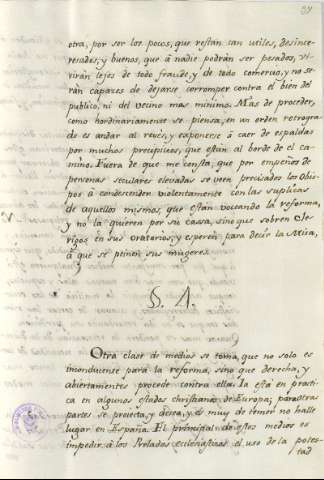 otra, por ser los pocos, que restan tan utiles, desinte-
resados, y buenos, que á nadie podrán ser pesados, vi-
virán lejos de todo fraude, y de todo comercio, y no se-
rán capaces de dejarse corromper contra el bien del
publico, ni del vecino mas minimo. Mas de proceder,
como hordinariamente se piensa, en un orden retrogra-
do es andar al revés, y exponerse á caer de espaldas
por muchos precipicios, que están al borde de el ca-
mino. Fuera de que me consta, que por empeños de
personas seculares elevadas se veen precisados los Obis-
pos á condescender violentamente con las suplicas
de aquellos mismos, que están voceando la reforma,
y no la quieren por su cassa, sino que sobren Cle-
rigos en sus oratorios, y esperen para decir la Missa,
á que se peinen sus mugeres.
§. 4.
Otra clase de medios se toma, que no solo es
inconducente para la reforma, sino que derecha, y
abiertamente procede contra ella. Ia está en practi-
ca en algunos estados christianos de Europa; para otras
partes se proyecta, y desea, y es muy de temer no halle
lugar en España. El principal de estos medios es
impedir á los Prelados ecclesiasticos el uso de la potes-
tad